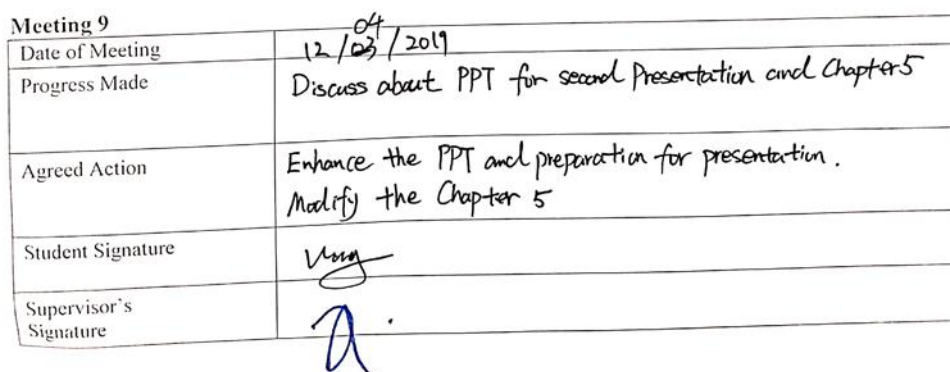 Meeting 9
Date of Meeting
04
12/03/2019
Progress Made
Discuss about PPT for second Presentation and Chapter 5
Agreed Action
Enhance the PPT and preparation for presentation.
Modify the Chapter 5
Student Signature
Supervisor's
Signature